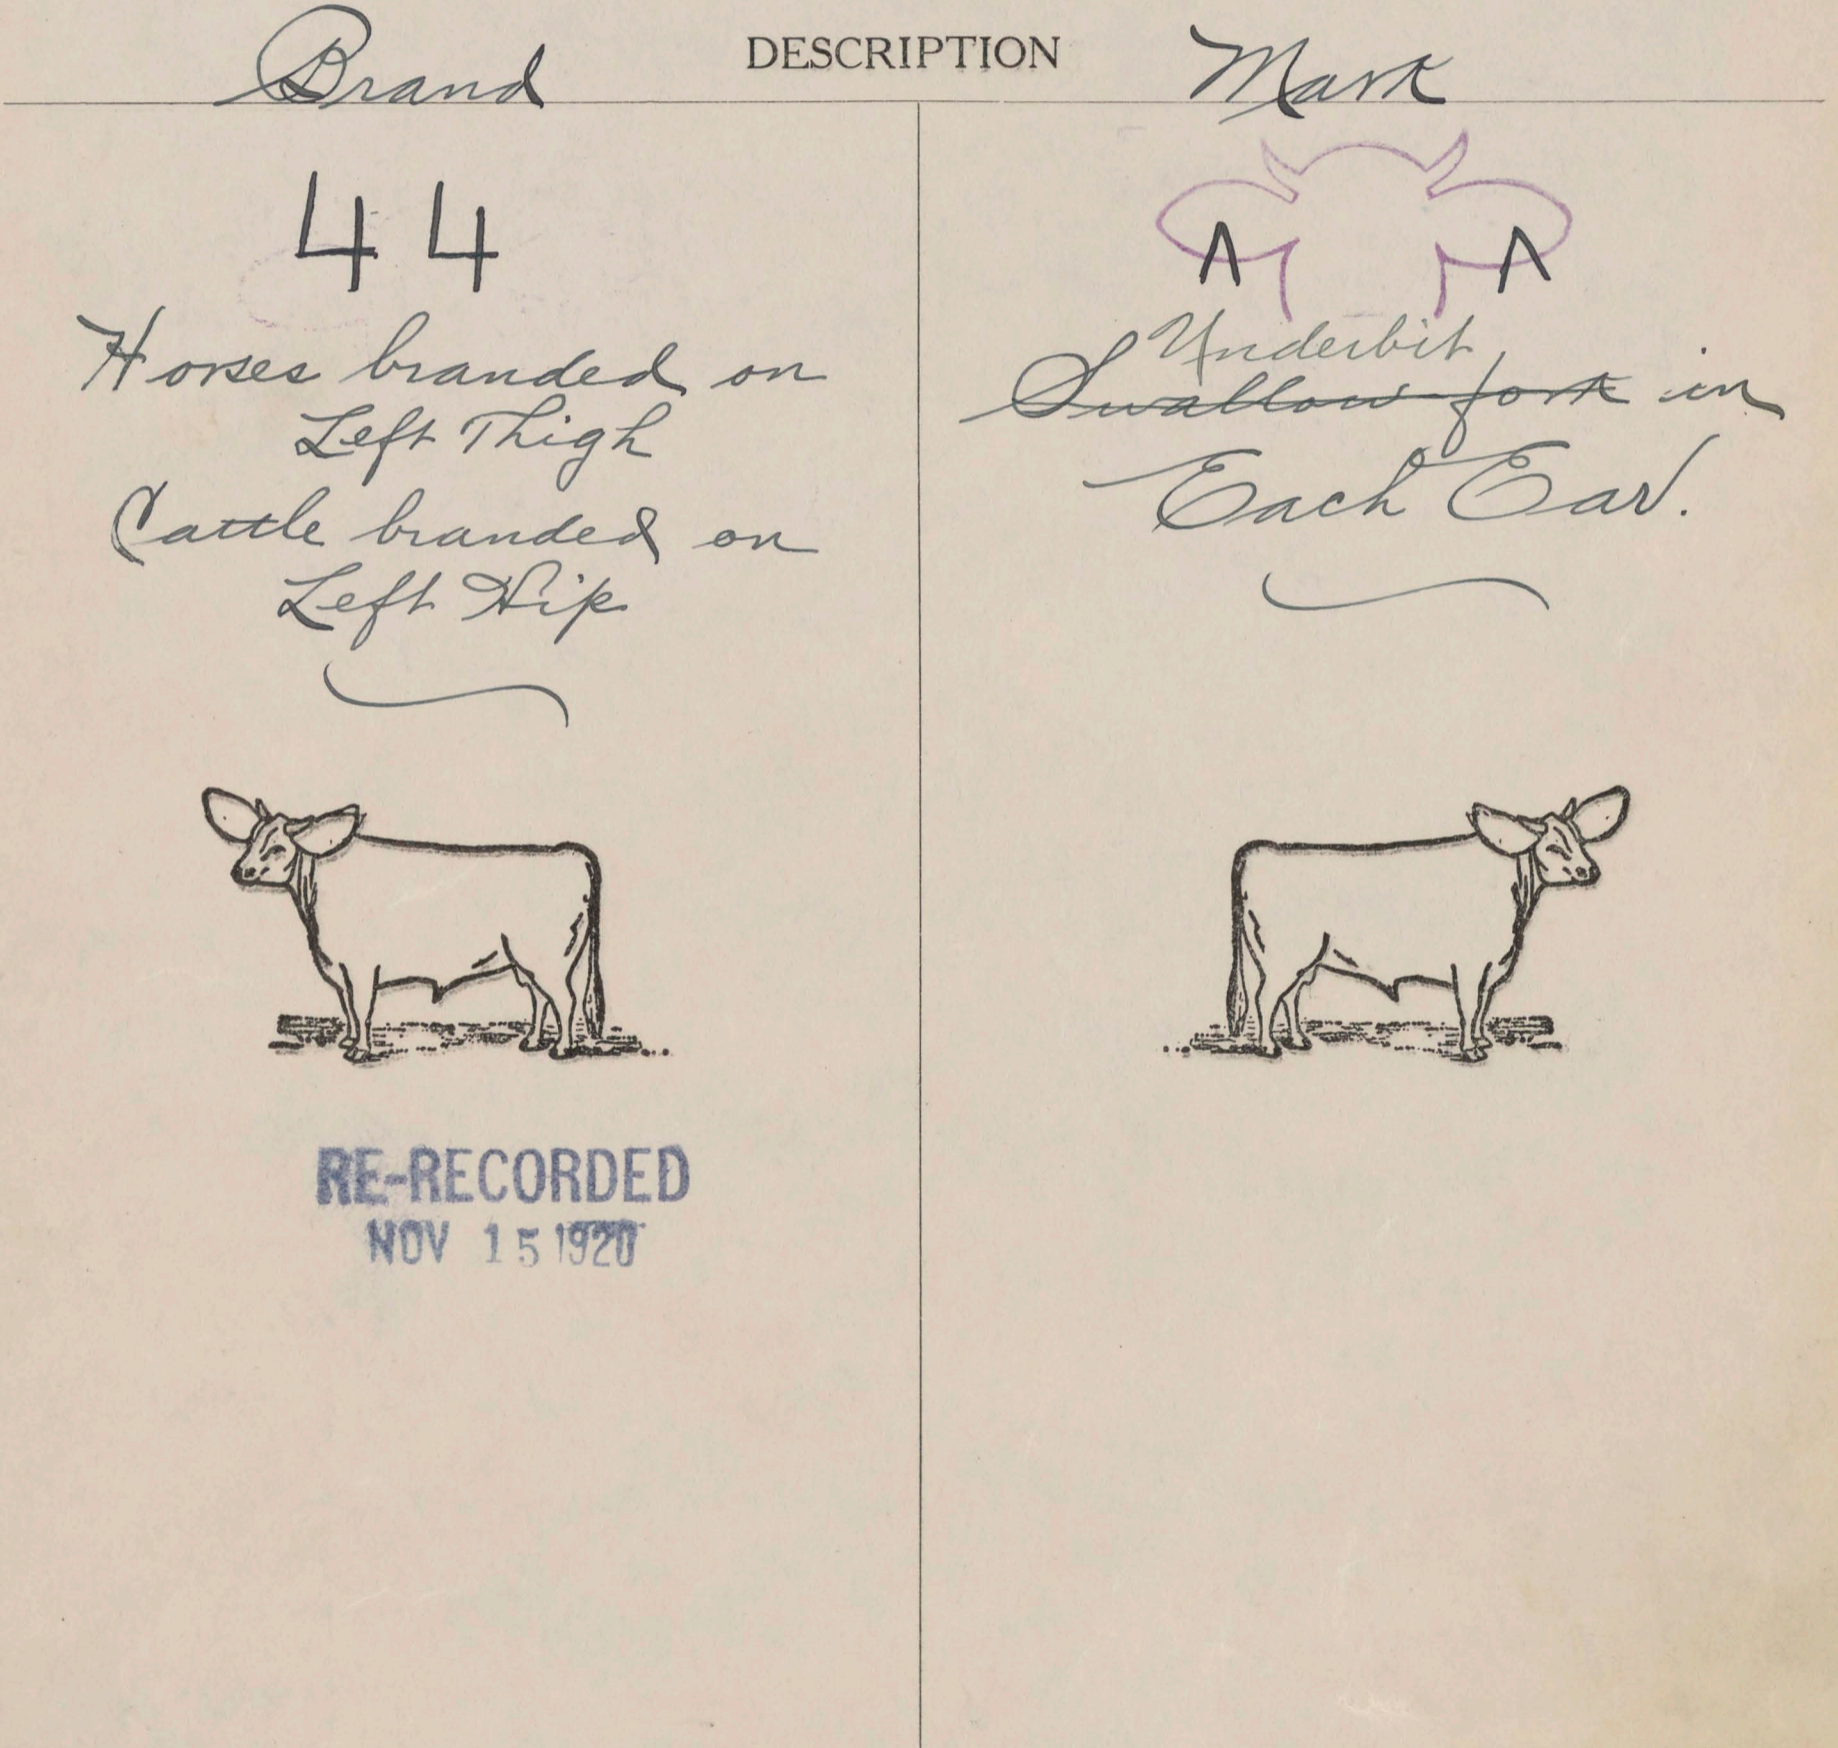 Brand DESCRIPTION Mark
44
Horses branded on
Left Thigh
Cattle branded on
Left Hip
RE-RECORDED
NOV 15 1920
Underbit
Swallow-fork in
Each Ear.